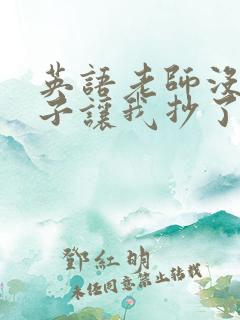 英語老師沒
子讓我抄了
鄧紅明
未經同意禁止轉載